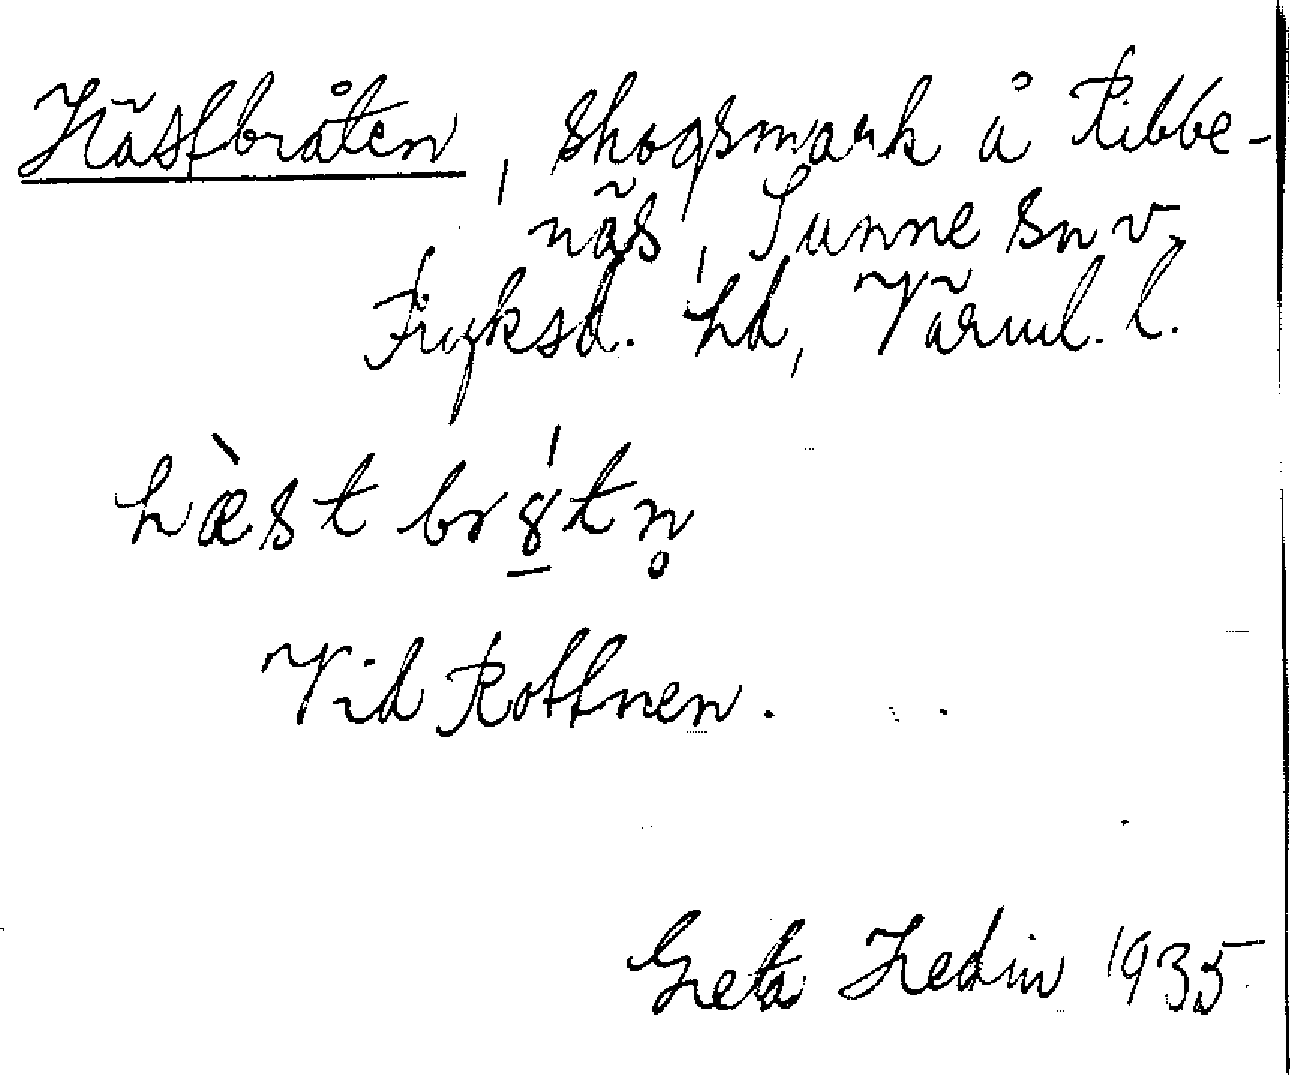 Hästbråten, skogsmark å Ribbe-
näs, Sunne sn v.
Fryksd. hd, Värml. l.
hæ̀st br8̱́tn̥
Vid Rottnen.
Greta Hedin 1935